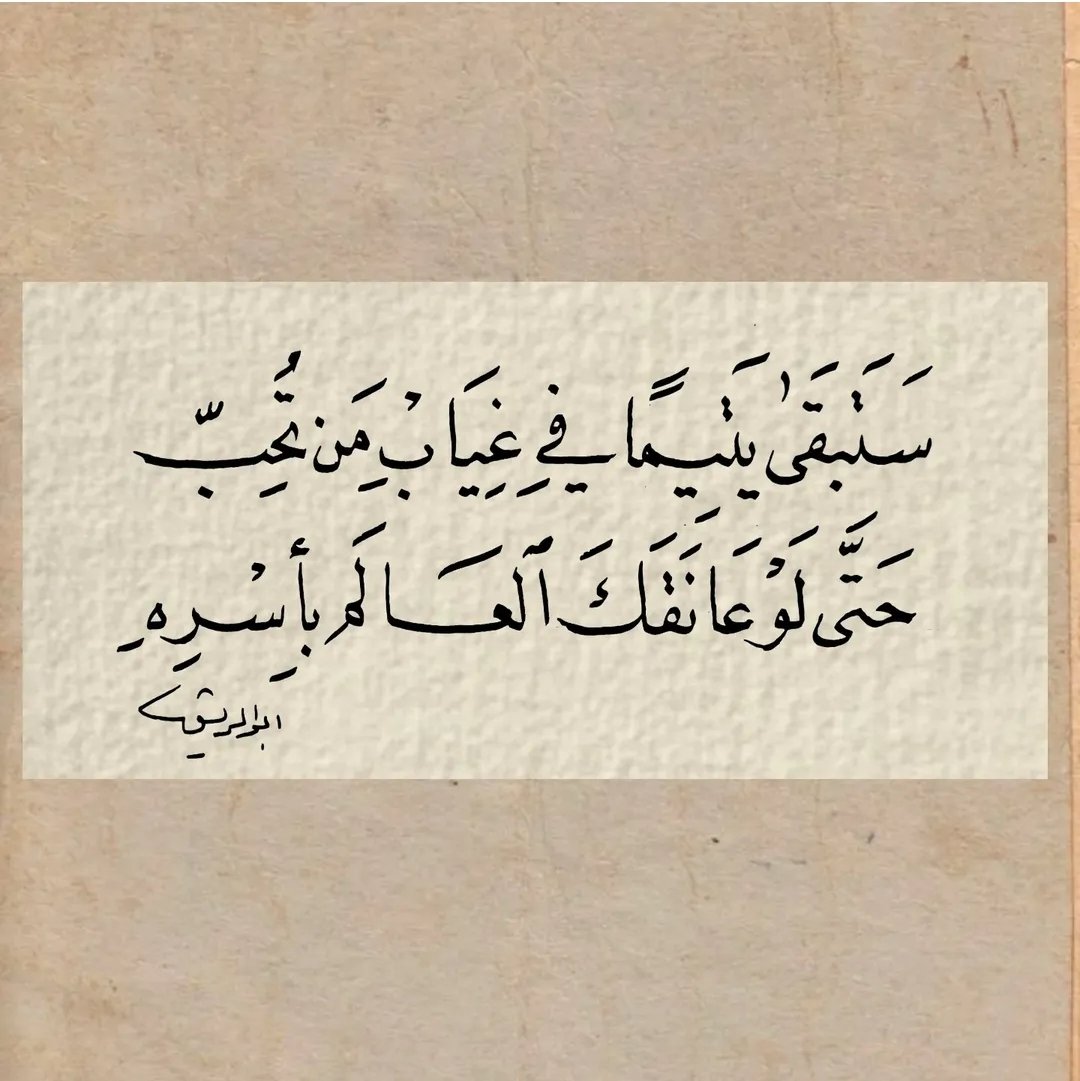 سَتَبقَىٰ يَتِيمًا فِي غِيَابِ مَن تُحِبّ
حَتَّى لَوْ عَانَقَكَ ٱلعَالَم بِأَسْرِهِ